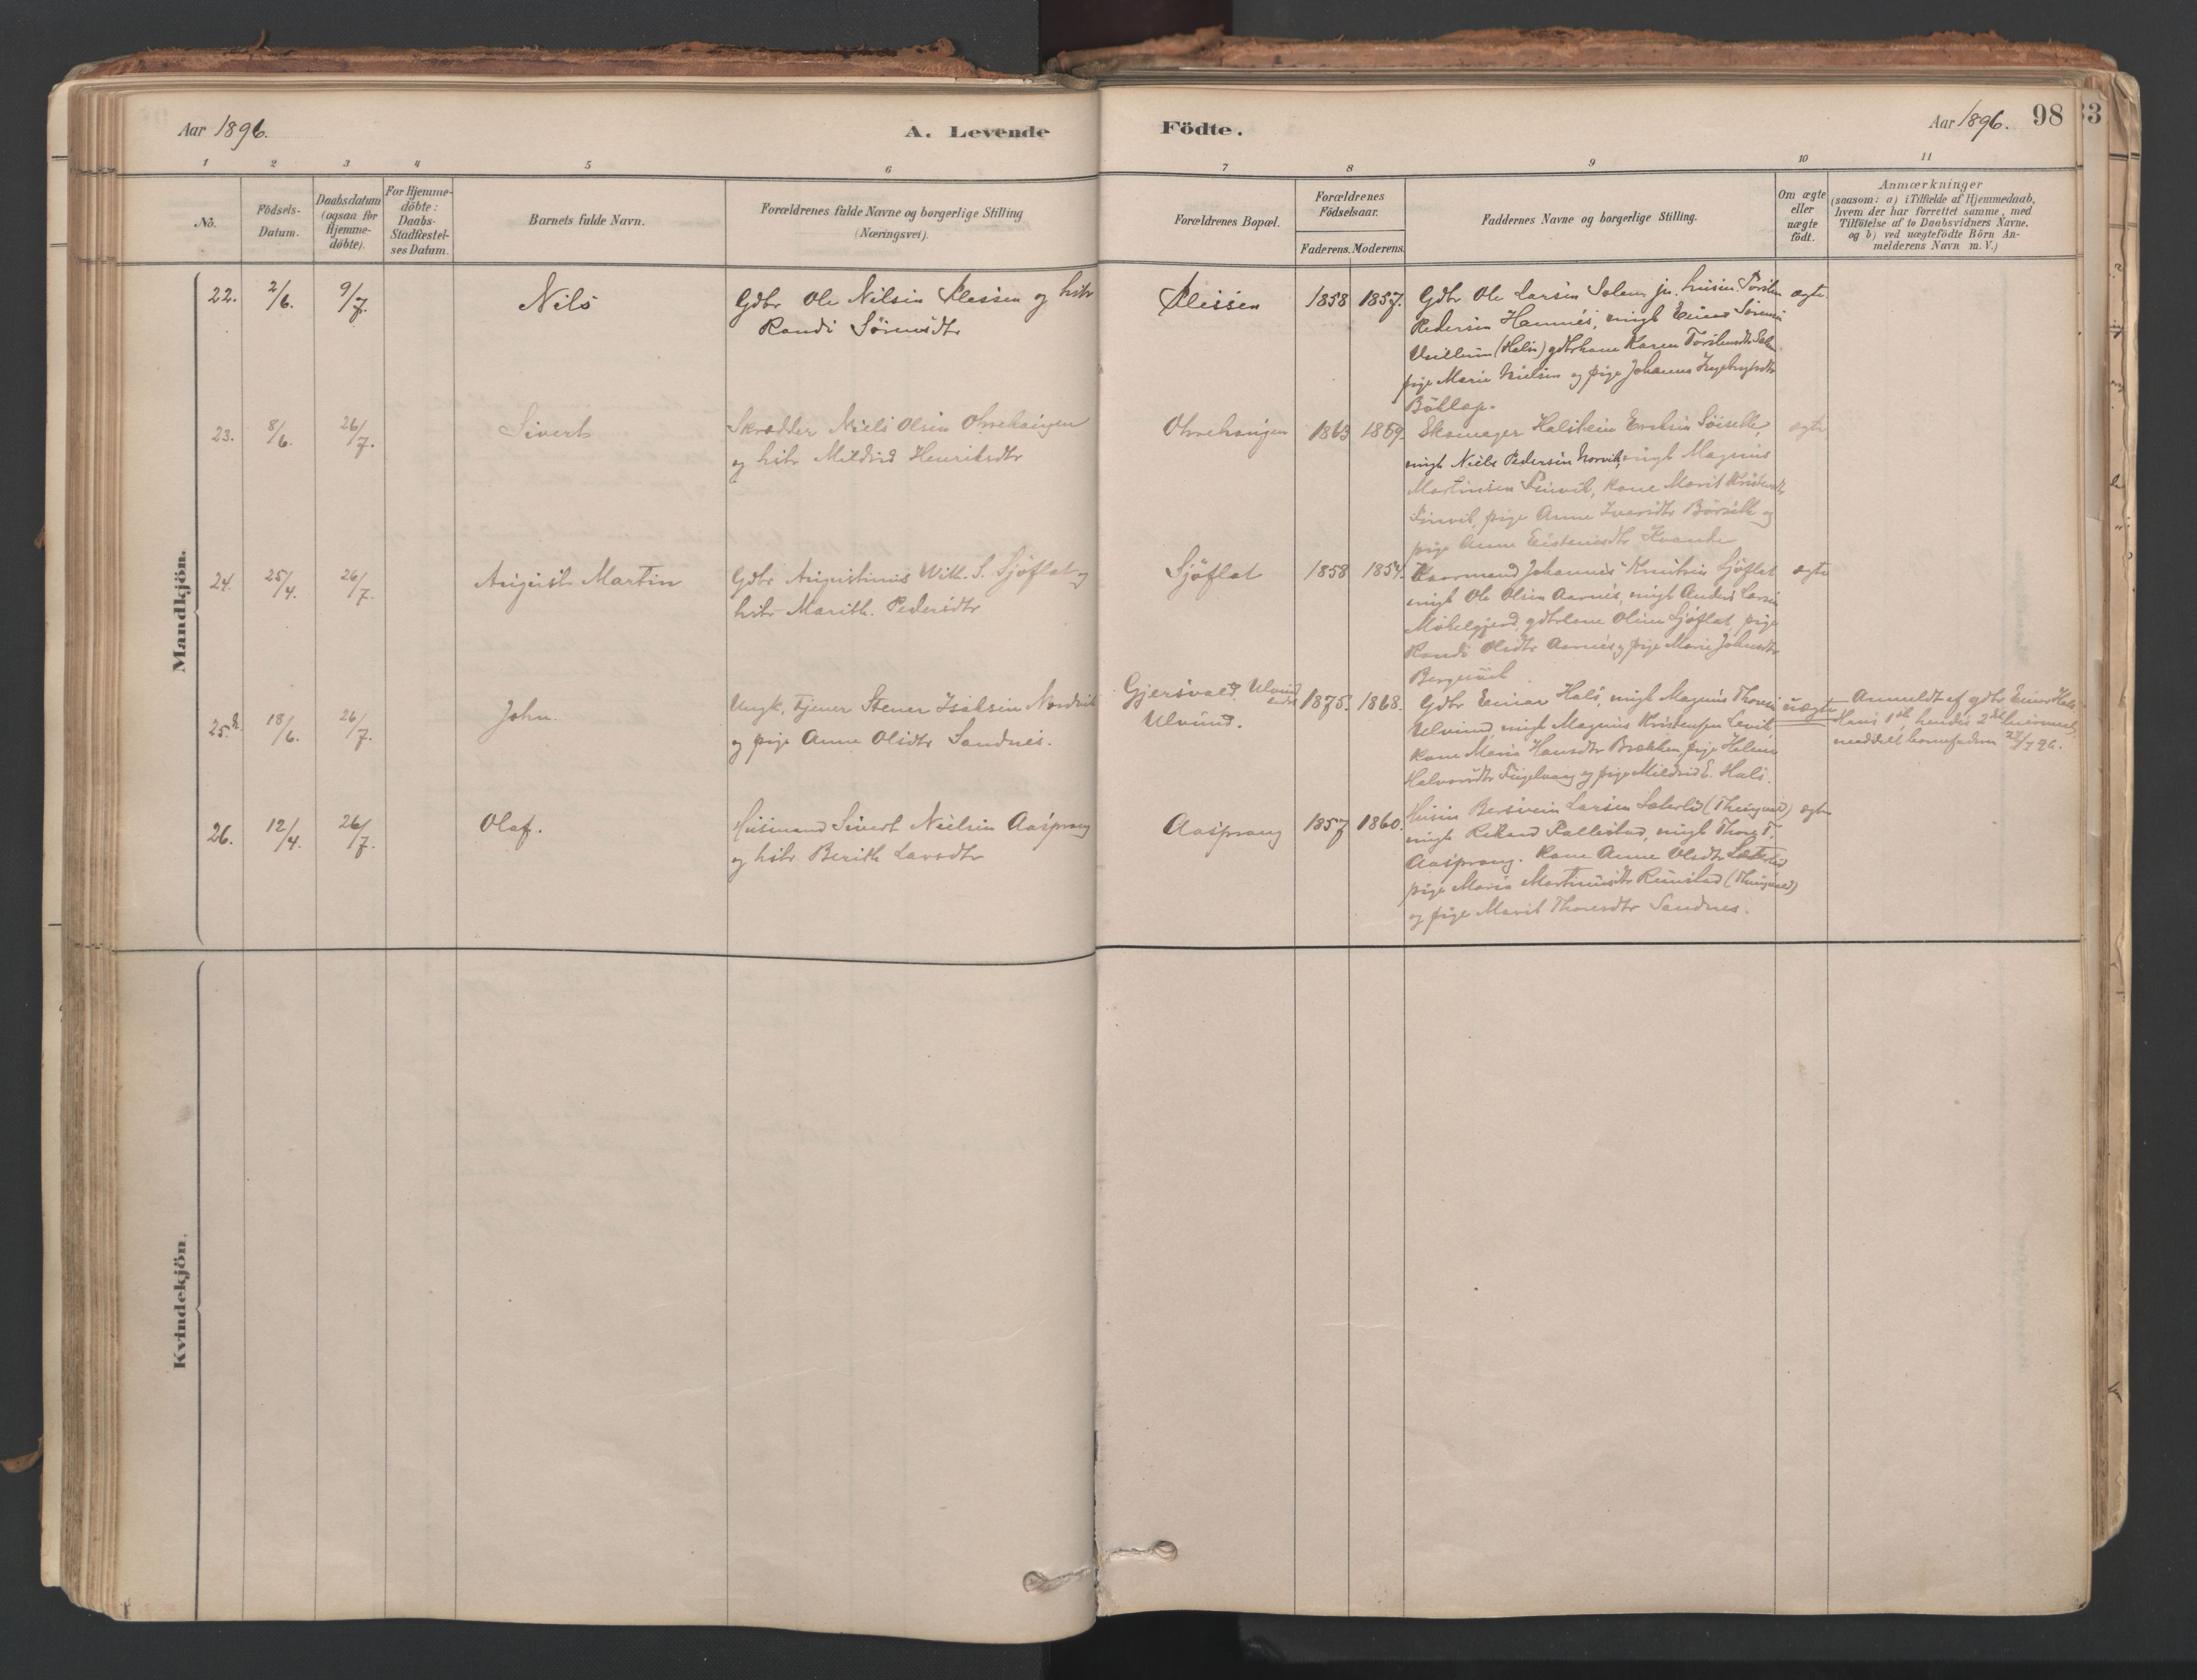 Aar 1896.
A. Levende
Födte.
Aar 1896. 98
33
1 2 3 4 5 6 7 8 9 10 11
No.
Födsels-
Datum.
Daabsdatum
(ogsaa for
Hjemme-
döbte).
For Hjemme-
döbte:
Daabs-
Stadfæstel-
ses Datum.
Barnets fulde Navn.
Forældrenes fulde Navne og borgerlige Stilling
(Næringsvei).
Forældrenes Bopæl.
Forældrenes
Födselsaar.
Faderens. Moderens.
Faddernes Navne og borgerlige Stilling.
Om ægte
eller
uægte
födt.
Anmærkninger
(saasom: a) i Tilfælde af Hjemmedaab,
hvem der har forrettet samme, med
Tilföielse af to Daabsvidners Navne.
og b) ved uægtefödte Börn An-
melderens Navn m. V.)
Mandkjön.
22. 2/6. 9/7. Nils
Gdbr Ole Nilsen Sleisen og hstr
Randi Sörensdtr
Sleisen 1858 1857.
Gdbr Ole Larsen Solem,
Pedersen Hamnes, ungk Einar Sörensen
(Halse) gdbrkone Karen
pige Marie Nielsen og pige Johanna Ingebrigtsdtr
Böklep.
ægte
23. 8/6. 26/7. Sivert
Skrædder Niels Olsen Orrehaugen
og hstr Mildrid Henriksdtr
Orrehaugen 1863 1869.
Skomager Halstein
ungk Niels Pedersen Norvik, ungk Magnus
Martinsen Sinvik, kone Marit
Sinvik, pige Anne Iversdtr og
pige Anne Kvande
ægte
24. 25/4. 26/7. August Martin
Gdbr Augustinus Wilh. S. Sjöflat og
hstr Marith. Pedersdtr
Sjöflat 1858 1854.
Kaarmand Johannes Knutsen Sjöflat
ungk Ole Olsen Aarnes, ungk Anders Larsen
gdbrkone Oline Sjöflat, pige
Randi Olsdtr Aarnes, pige Marie Johnsdtr
ægte
25. 18/6. 26/7. John.
Ungk. Tjener Stener Isaksen Nordvik
og pige Anne Olsdtr Sandnes.
Gjersvold, Ulvund
Ulvund.
1875. 1868.
Gdbr Einar Hals, ungk Magnus
Ulvund, ungk Magnus Kristensen
kone Maria Hansdtr Brækken, pige Helene
Halvorsdtr Fuglevaag og pige Mildrid E. Hals.
uægte
Anmeldt af gdbr Einar Hals
Hans 1ste hendes 2det
meddelt barnefaderen 28/7 96.
26. 12/4. 26/7. Olaf.
Husmand Sivert Nielsen Aasprang
og hstr Berith Larsdtr
Aasprang 1857 1860.
Husm Bersvein Larsen Sæterlid (Thingvold)
ungk Rikard Pallestad, ungk Thore T.
Aasprang. Kone Anne Olsdtr Sæterlid
pige Maria Martinusdtr Rimstad (Thingvold)
og pige Marit Thoresdtr Sandnes.
ægte
Kvindekjön.